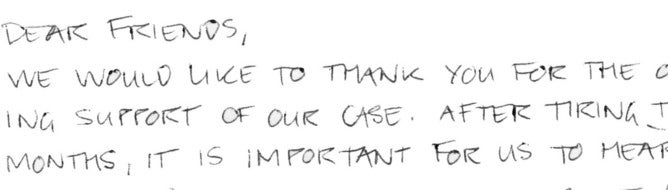 DEAR FRIENDS,
WE WOULD LIKE TO THANK YOU FOR THE
ING SUPPORT OF OUR CASE. AFTER TIRING
MONTHS, IT IS IMPORTANT FOR US TO HEAR